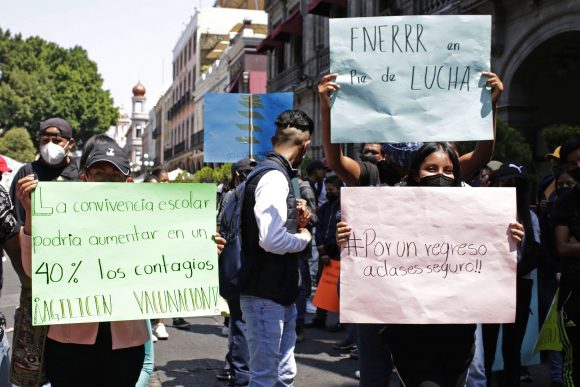 FNERRR en
Pie de LUCHA
La convivencia escolar
podría aumentar en un
40% los contagios
¡AGILICEN VACUNACIÓN!
#Por un regreso
a clases seguro!!